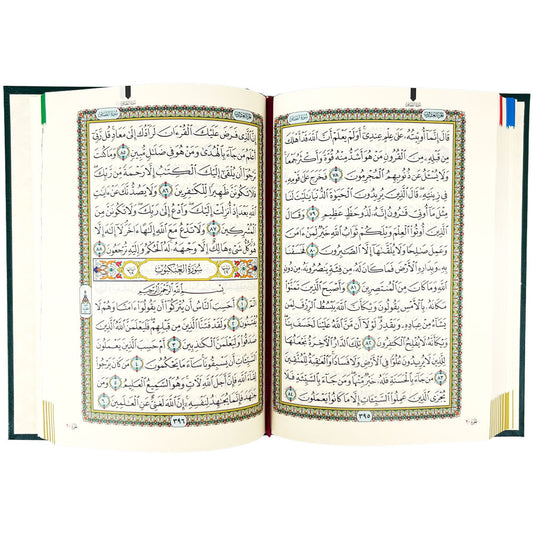 الجزء العشرون سورة القصص
قَالَ إِنَّمَآ أُوتِيتُهُۥ عَلَىٰ عِلْمٍ عِندِىٓ أَوَلَمْ يَعْلَمْ أَنَّ ٱللَّهَ قَدْ أَهْلَكَ
مِن قَبْلِهِۦ مِنَ ٱلْقُرُونِ مَنْ هُوَ أَشَدُّ مِنْهُ قُوَّةً وَأَكْثَرُ جَمْعًا
وَلَا يُسْـَٔلُ عَن ذُنُوبِهِمُ ٱلْمُجْرِمُونَ ٧٨ فَخَرَجَ عَلَىٰ قَوْمِهِۦ
فِى زِينَتِهِۦ قَالَ ٱلَّذِينَ يُرِيدُونَ ٱلْحَيَوٰةَ ٱلدُّنْيَا يَـٰلَيْتَ لَنَا
مِثْلَ مَآ أُوتِىَ قَـٰرُونُ إِنَّهُۥ لَذُو حَظٍّ عَظِيمٍ ٧٩ وَقَالَ
ٱلَّذِينَ أُوتُوا۟ ٱلْعِلْمَ وَيْلَكُمْ ثَوَابُ ٱللَّهِ خَيْرٌ لِّمَنْ ءَامَنَ
وَعَمِلَ صَـٰلِحًا وَلَا يُلَقَّىٰهَآ إِلَّا ٱلصَّـٰبِرُونَ ٨٠ فَخَسَفْنَا
بِهِۦ وَبِدَارِهِ ٱلْأَرْضَ فَمَا كَانَ لَهُۥ مِن فِئَةٍ يَنصُرُونَهُۥ مِن دُونِ
ٱللَّهِ وَمَا كَانَ مِنَ ٱلْمُنتَصِرِينَ ٨١ وَأَصْبَحَ ٱلَّذِينَ تَمَنَّوْا۟
مَكَانَهُۥ بِٱلْأَمْسِ يَقُولُونَ وَيْكَأَنَّ ٱللَّهَ يَبْسُطُ ٱلرِّزْقَ لِمَن
يَشَآءُ مِنْ عِبَادِهِۦ وَيَقْدِرُ لَوْلَآ أَن مَّنَّ ٱللَّهُ عَلَيْنَا لَخَسَفَ بِنَا
وَيْكَأَنَّهُۥ لَا يُفْلِحُ ٱلْكَـٰفِرُونَ ٨٢ تِلْكَ ٱلدَّارُ ٱلْـَٔاخِرَةُ نَجْعَلُهَا
لِلَّذِينَ لَا يُرِيدُونَ عُلُوًّا فِى ٱلْأَرْضِ وَلَا فَسَادًا وَٱلْعَـٰقِبَةُ لِلْمُتَّقِينَ
٨٣ مَن جَآءَ بِٱلْحَسَنَةِ فَلَهُۥ خَيْرٌ مِّنْهَا وَمَن جَآءَ بِٱلسَّيِّئَةِ فَلَا
يُجْزَى ٱلَّذِينَ عَمِلُوا۟ ٱلسَّيِّـَٔاتِ إِلَّا مَا كَانُوا۟ يَعْمَلُونَ ٨٤
٣٩٥
الجزء العشرون سورة القصص
إِنَّ ٱلَّذِى فَرَضَ عَلَيْكَ ٱلْقُرْءَانَ لَرَآدُّكَ إِلَىٰ مَعَادٍ قُل رَّبِّىٓ
أَعْلَمُ مَن جَآءَ بِٱلْهُدَىٰ وَمَنْ هُوَ فِى ضَلَـٰلٍ مُّبِينٍ ٨٥ وَمَا كُنتَ
تَرْجُوٓا۟ أَن يُلْقَىٰٓ إِلَيْكَ ٱلْكِتَـٰبُ إِلَّا رَحْمَةً مِّن رَّبِّكَ
فَلَا تَكُونَنَّ ظَهِيرًا لِّلْكَـٰفِرِينَ ٨٦ وَلَا يَصُدُّنَّكَ عَنْ ءَايَـٰتِ
ٱللَّهِ بَعْدَ إِذْ أُنزِلَتْ إِلَيْكَ وَٱدْعُ إِلَىٰ رَبِّكَ وَلَا تَكُونَنَّ مِنَ
ٱلْمُشْرِكِينَ ٨٧ وَلَا تَدْعُ مَعَ ٱللَّهِ إِلَـٰهًا ءَاخَرَ لَآ إِلَـٰهَ إِلَّا
هُوَ كُلُّ شَىْءٍ هَالِكٌ إِلَّا وَجْهَهُۥ لَهُ ٱلْحُكْمُ وَإِلَيْهِ تُرْجَعُونَ ٨٨
سُورَةُ العَنكَبُوتِ
بِسْمِ ٱللَّهِ ٱلرَّحْمَـٰنِ ٱلرَّحِيمِ
الٓمٓ ١ أَحَسِبَ ٱلنَّاسُ أَن يُتْرَكُوٓا۟ أَن يَقُولُوٓا۟ ءَامَنَّا وَهُمْ لَا
يُفْتَنُونَ ٢ وَلَقَدْ فَتَنَّا ٱلَّذِينَ مِن قَبْلِهِمْ فَلَيَعْلَمَنَّ ٱللَّهُ ٱلَّذِينَ
صَدَقُوا۟ وَلَيَعْلَمَنَّ ٱلْكَـٰذِبِينَ ٣ أَمْ حَسِبَ ٱلَّذِينَ يَعْمَلُونَ
ٱلسَّيِّـَٔاتِ أَن يَسْبِقُونَا سَآءَ مَا يَحْكُمُونَ ٤ مَن كَانَ يَرْجُوا۟
لِقَآءَ ٱللَّهِ فَإِنَّ أَجَلَ ٱللَّهِ لَـَٔاتٍ وَهُوَ ٱلسَّمِيعُ ٱلْعَلِيمُ ٥
وَمَن جَـٰهَدَ فَإِنَّمَا يُجَـٰهِدُ لِنَفْسِهِۦٓ إِنَّ ٱللَّهَ لَغَنِىٌّ عَنِ ٱلْعَـٰلَمِينَ ٦
٣٩٦